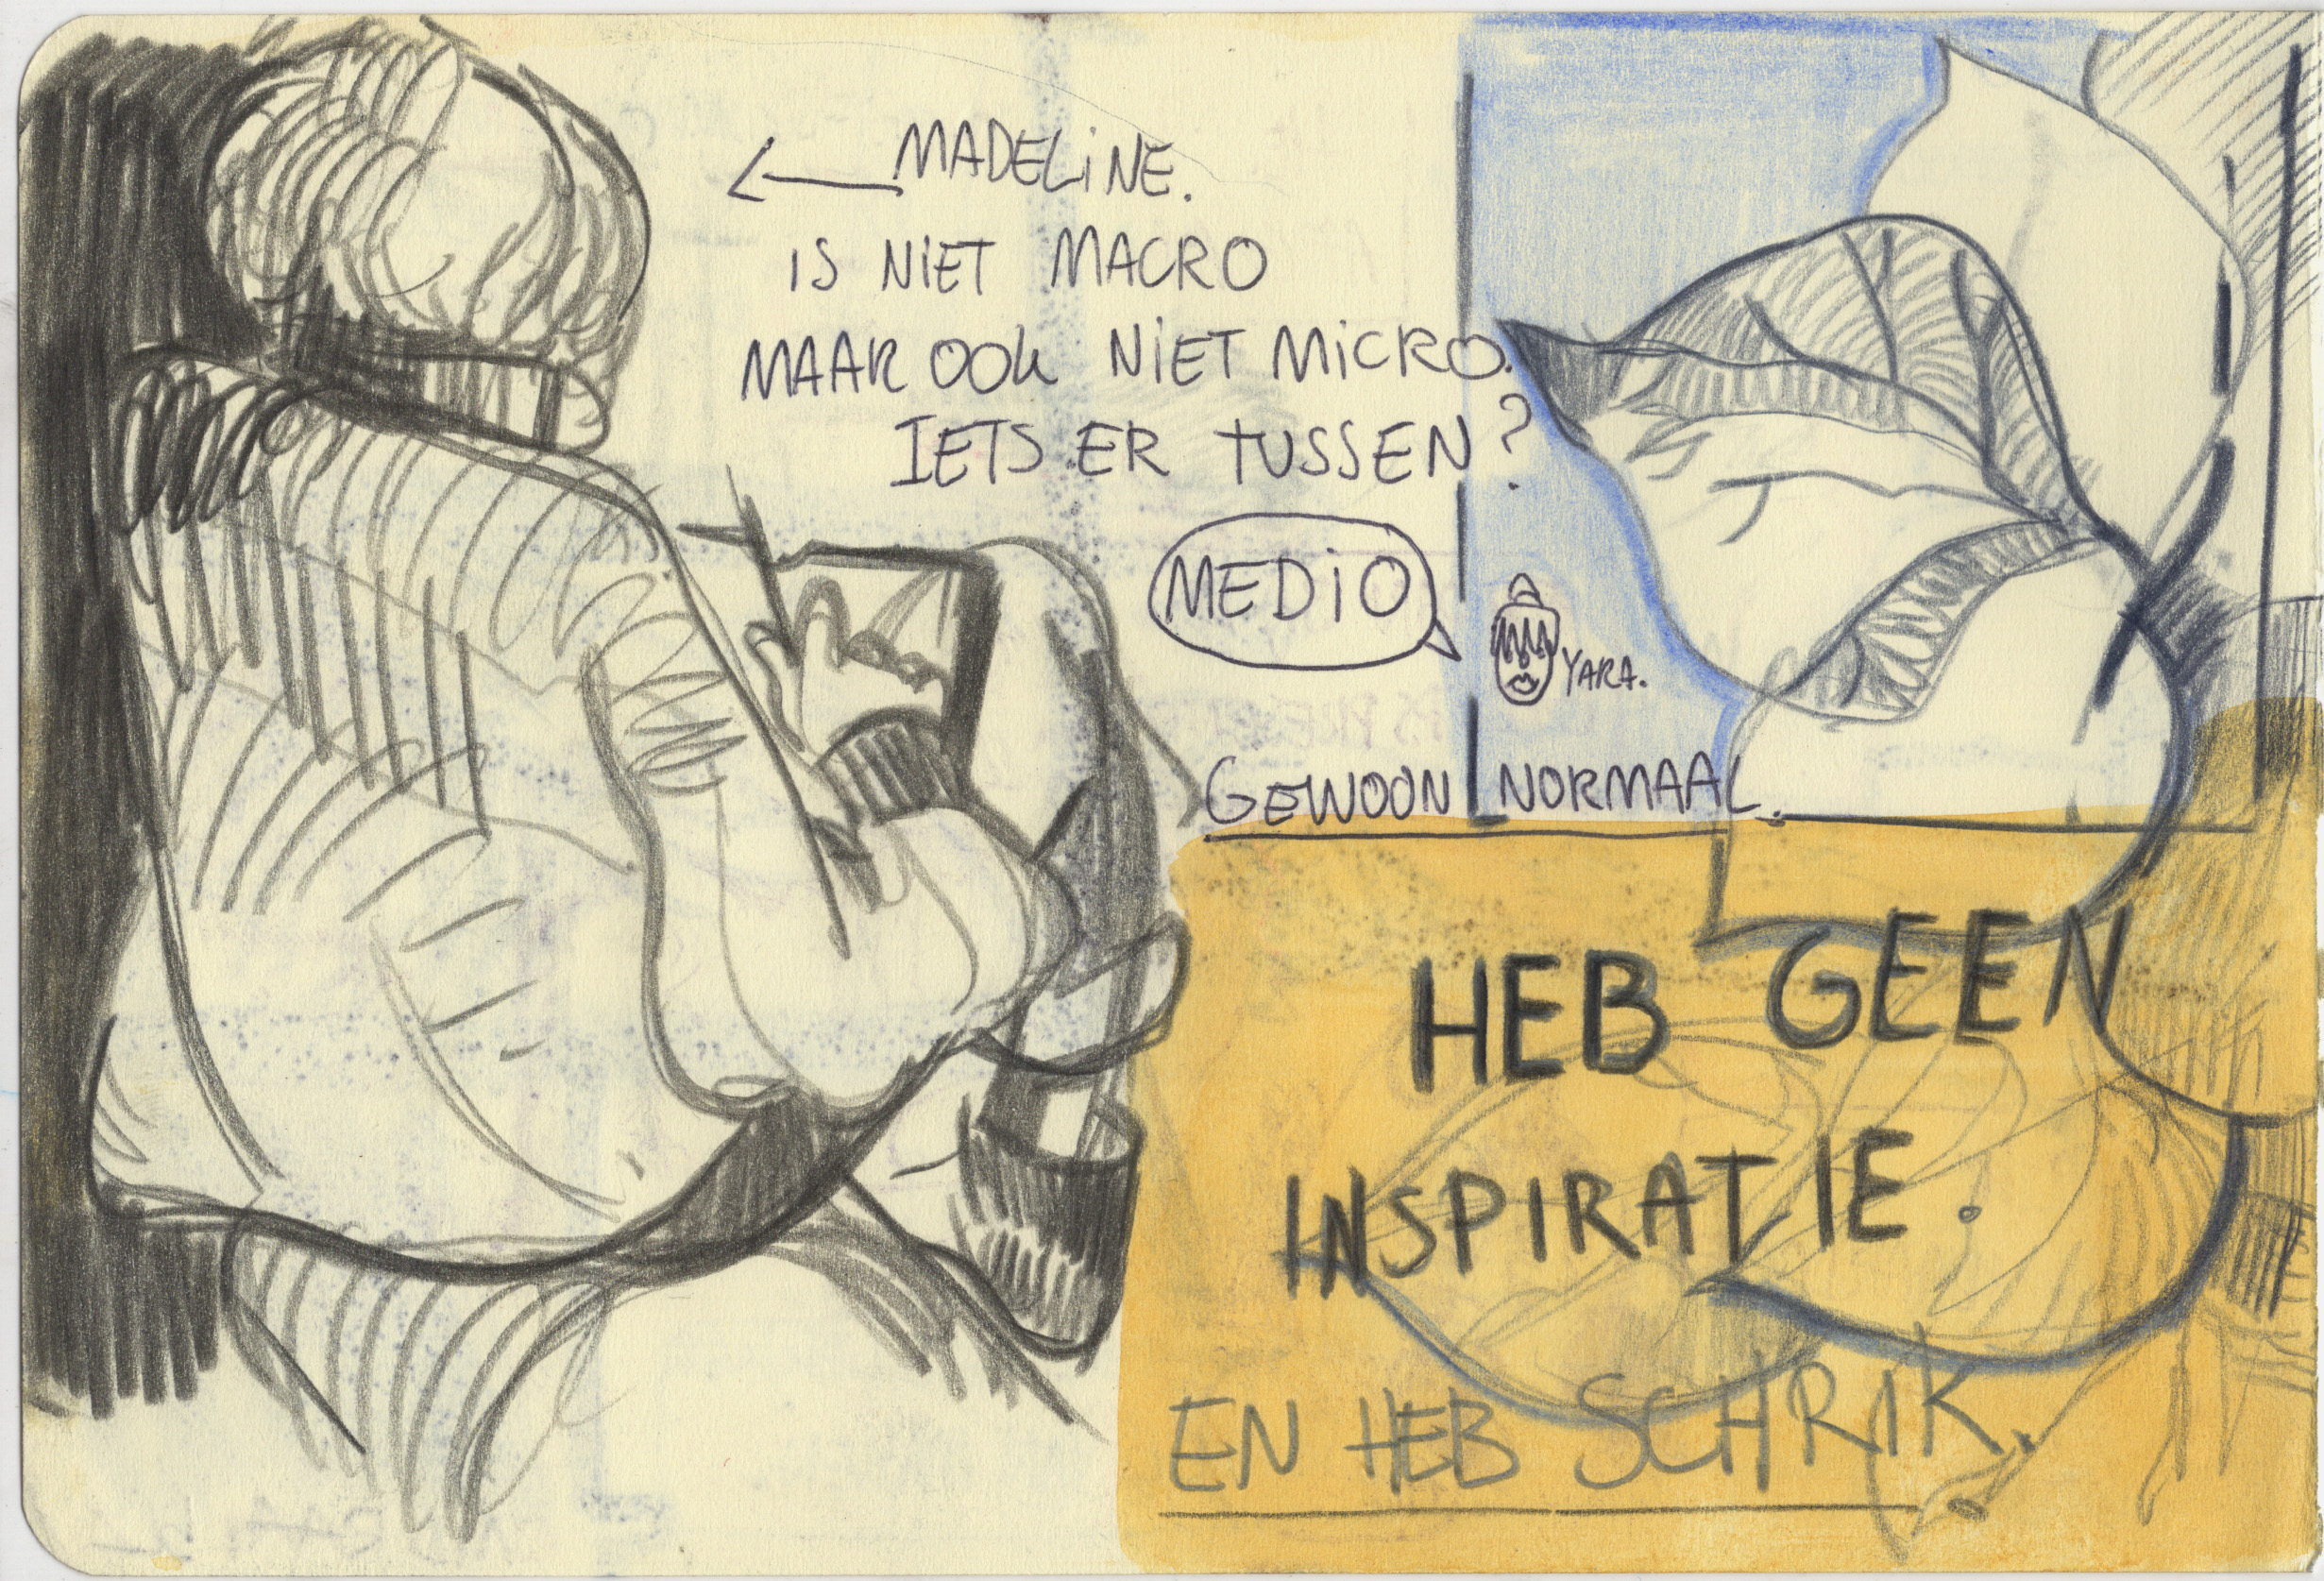 MADELiNE.
IS NiET MACRO
MAAR OOK NiET MiCRO.
IETS ER TUSSEN?
MEDiO
YARA.
GEWOON NORMAAL.
HEB GEEN
INSPIRATIE.
EN HEB SCHRIK.